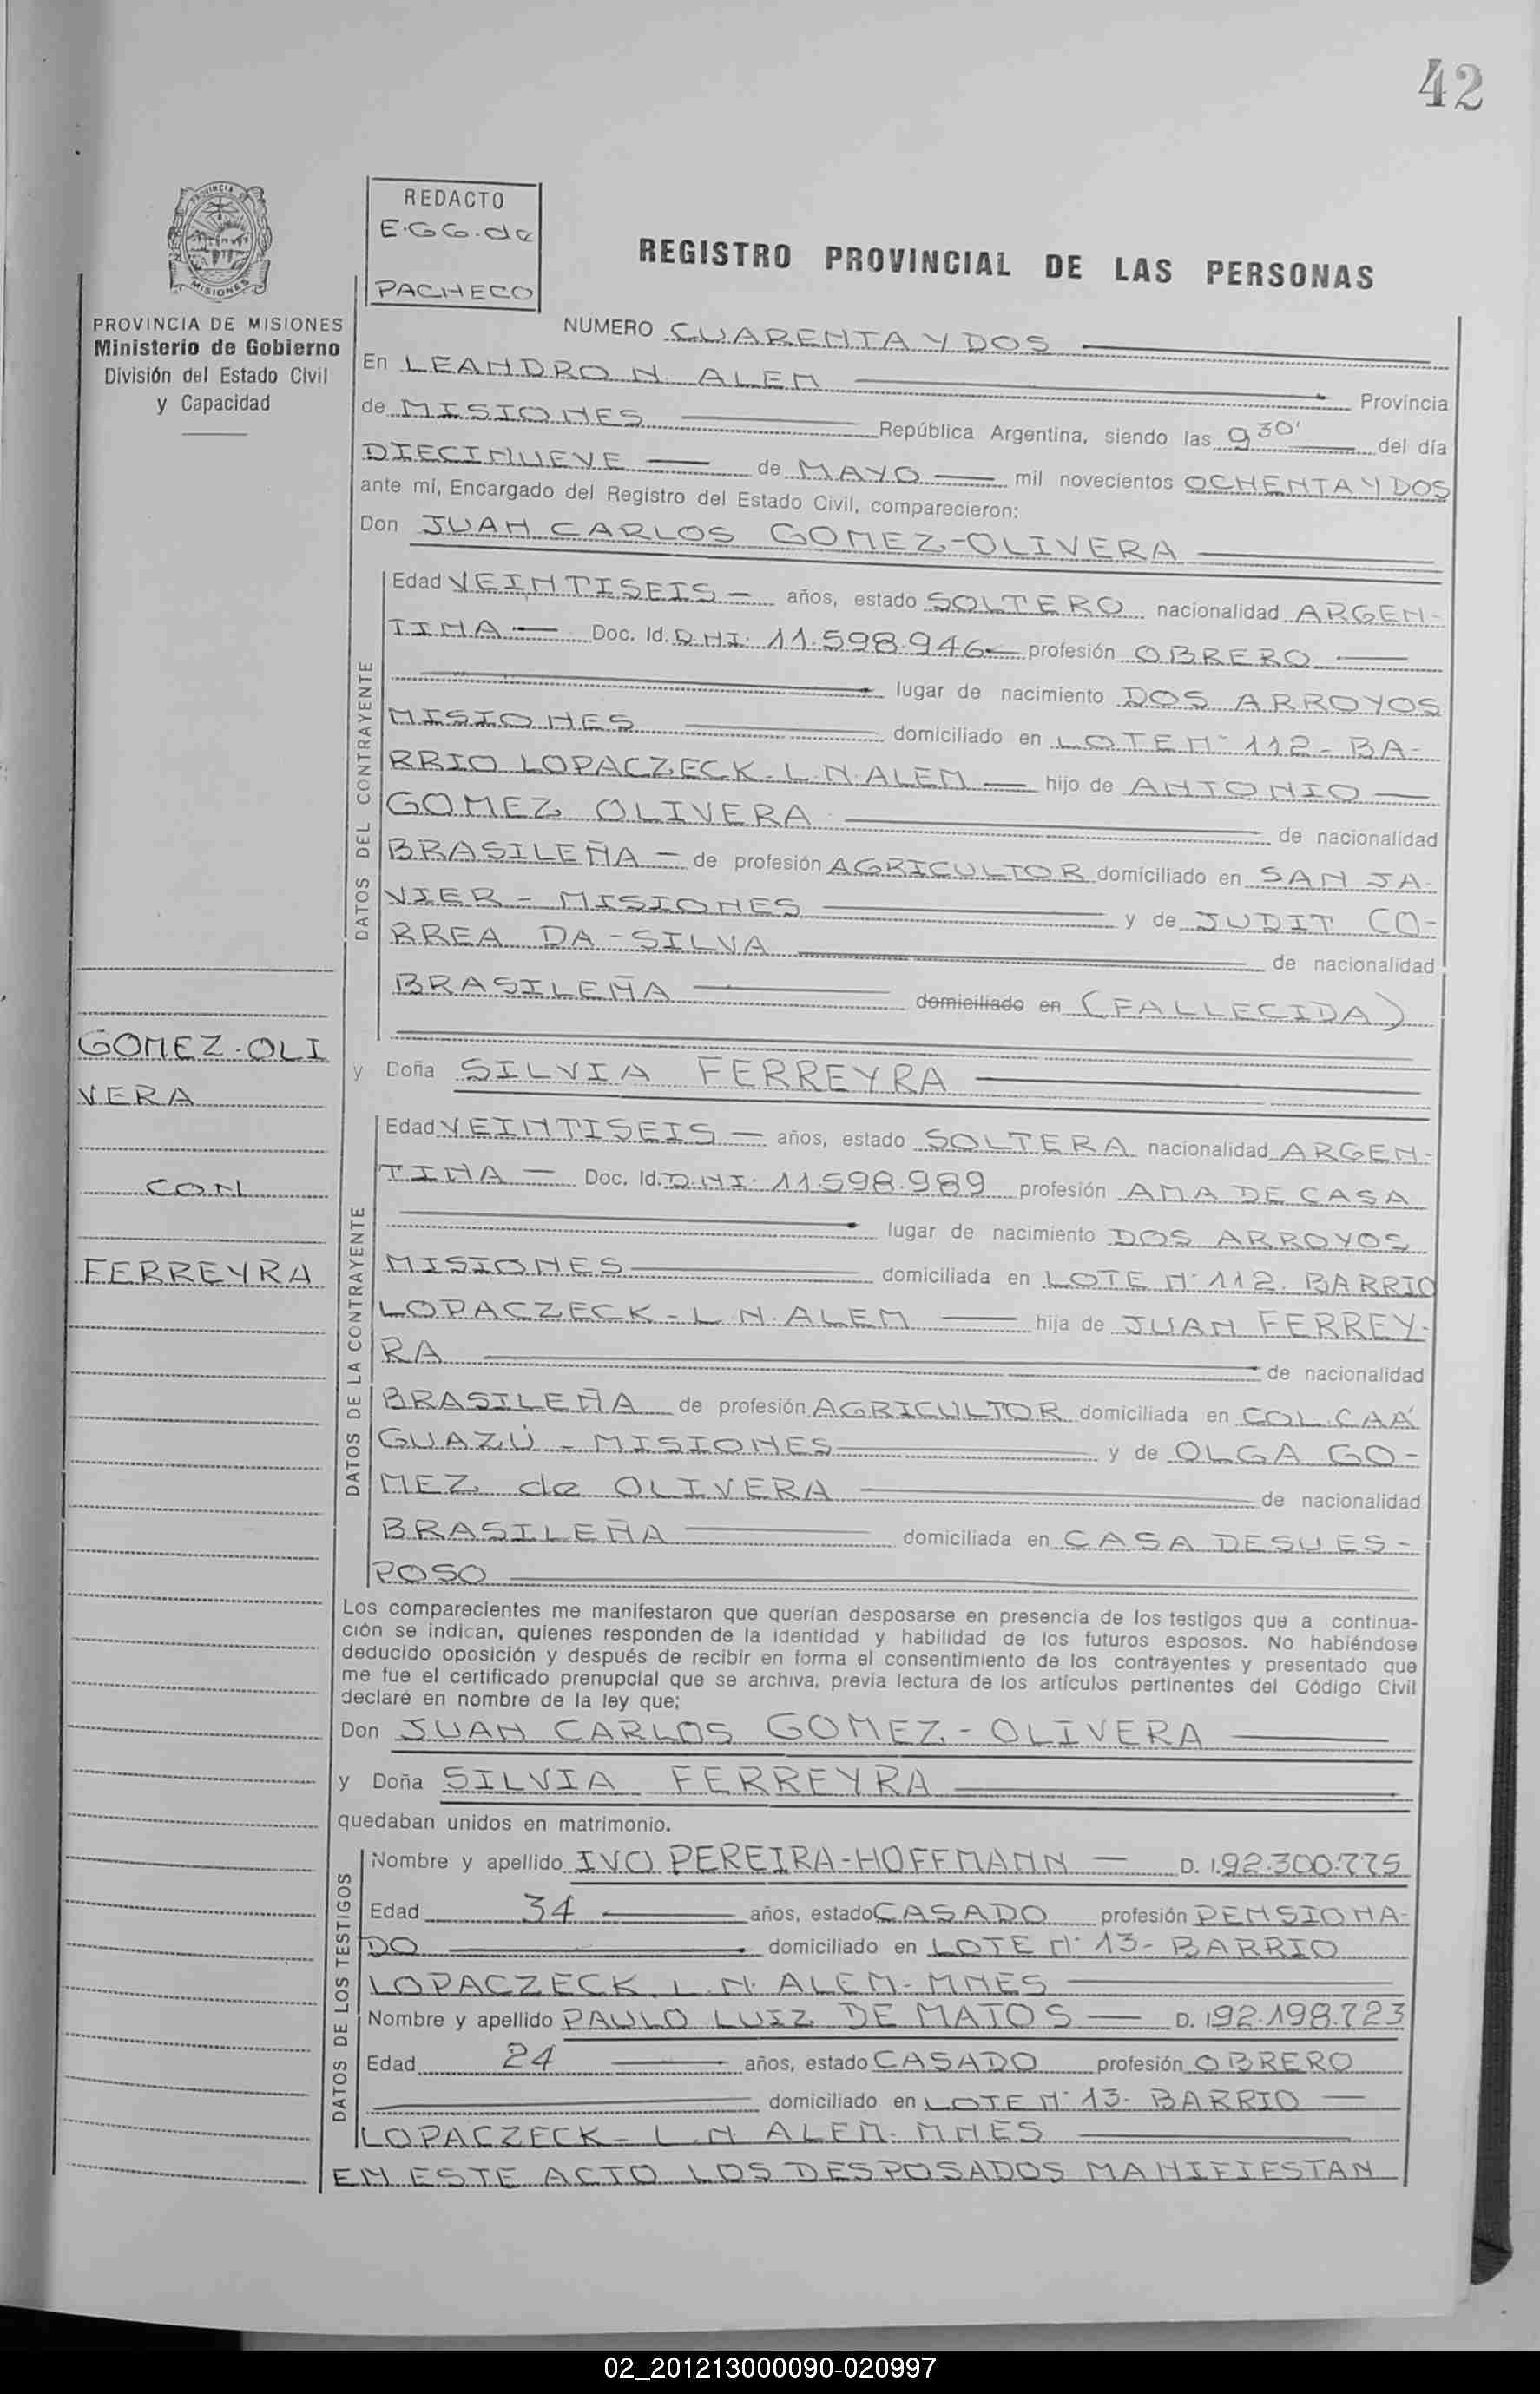 42
PROVINCIA DE
MISIONES
REDACTO
E.GG.de
PACHECO
REGISTRO PROVINCIAL DE LAS PERSONAS
PROVINCIA DE MISIONES
Ministerio de Gobierno
División del Estado Civil
y Capacidad
NUMERO CUARENTA Y DOS
En LEANDRO N. ALEM Provincia
de MISIONES República Argentina, siendo las 9 30' del día
DIECINUEVE de MAYO mil novecientos OCHENTA Y DOS
ante mí, Encargado del Registro del Estado Civil, comparecieron:
Don JUAN CARLOS GOMEZ-OLIVERA
DATOS DEL CONTRAYENTE
Edad VEINTISEIS - años, estado SOLTERO nacionalidad ARGEN-
TINA - Doc. Id. D.NI. 11.598.946 profesión OBRERO
lugar de nacimiento DOS ARROYOS
MISIONES domiciliado en LOTE N° 112 - BA-
RRIO LOPACZECK - L.N. ALEM hijo de ANTONIO
GOMEZ OLIVERA de nacionalidad
BRASILEÑA - de profesión AGRICULTOR domiciliado en SAN JA-
VIER - MISIONES y de JUDIT CO-
RREA DA-SILVA de nacionalidad
BRASILEÑA domiciliado en (FALLECIDA)
GOMEZ-OLI
VERA
CON
FERREYRA
y Doña SILVIA FERREYRA
DATOS DE LA CONTRAYENTE
Edad VEINTISEIS - años, estado SOLTERA nacionalidad ARGEN-
TINA - Doc. Id. D.NI. 11.598.989 profesión AMA DE CASA
lugar de nacimiento DOS ARROYOS
MISIONES domiciliada en LOTE N° 112. BARRIO
LOPACZECK - L.N. ALEM hija de JUAN FERREY-
RA de nacionalidad
BRASILEÑA de profesión AGRICULTOR domiciliada en COL. CAÁ
GUAZÚ - MISIONES y de OLGA GO-
MEZ de OLIVERA de nacionalidad
BRASILEÑA domiciliada en CASA DE SU ES-
POSO
Los comparecientes me manifestaron que querían desposarse en presencia de los testigos que a continua-
ción se indican, quienes responden de la identidad y habilidad de los futuros esposos. No habiéndose
deducido oposición y después de recibir en forma el consentimiento de los contrayentes y presentado que
me fue el certificado prenupcial que se archiva, previa lectura de los artículos pertinentes del Código Civil
declaré en nombre de la ley que;
Don JUAN CARLOS GOMEZ - OLIVERA
y Doña SILVIA FERREYRA
quedaban unidos en matrimonio.
DATOS DE LOS TESTIGOS
Nombre y apellido IVO PEREIRA-HOFFMANN - D. I. 92.300.775
Edad 34 años, estado CASADO profesión PENSIONA-
DO domiciliado en LOTE N° 13 - BARRIO
LOPACZECK. L.N. ALEM - MNES
Nombre y apellido PAULO LUIZ DE MATOS - D. I 92.198.723
Edad 24 años, estado CASADO profesión OBRERO
domiciliado en LOTE N° 13 - BARRIO -
LOPACZECK - L.N. ALEM. MNES
EN ESTE ACTO LOS DESPOSADOS MANIFIESTAN
02_201213000090-020997